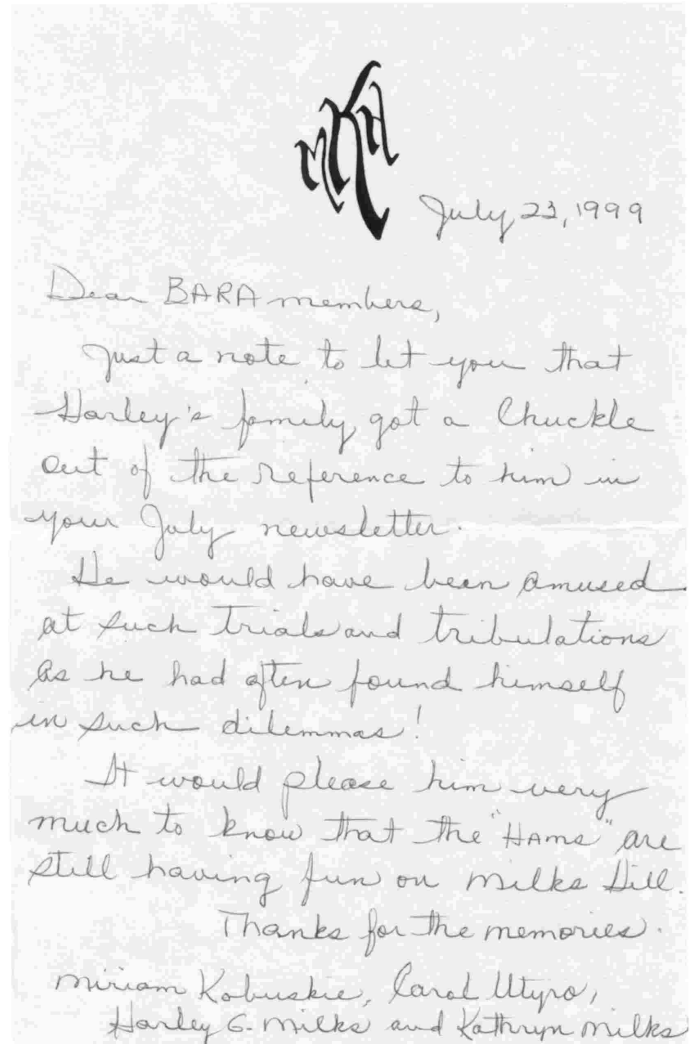 MKH
July 23, 1999
Dear BARA members,
Just a note to let you that
Harley's family got a Chuckle
out of the reference to him in
your July newsletter.
He would have been amused
at such trials and tribulations
as he had often found himself
in such dilemmas!
It would please him very
much to know that the "HAMS" are
still having fun on Milks Hill.
Thanks for the memories.
Miriam Kobuskie, Carol Utyro,
Harley G. Milks and Kathryn Milks